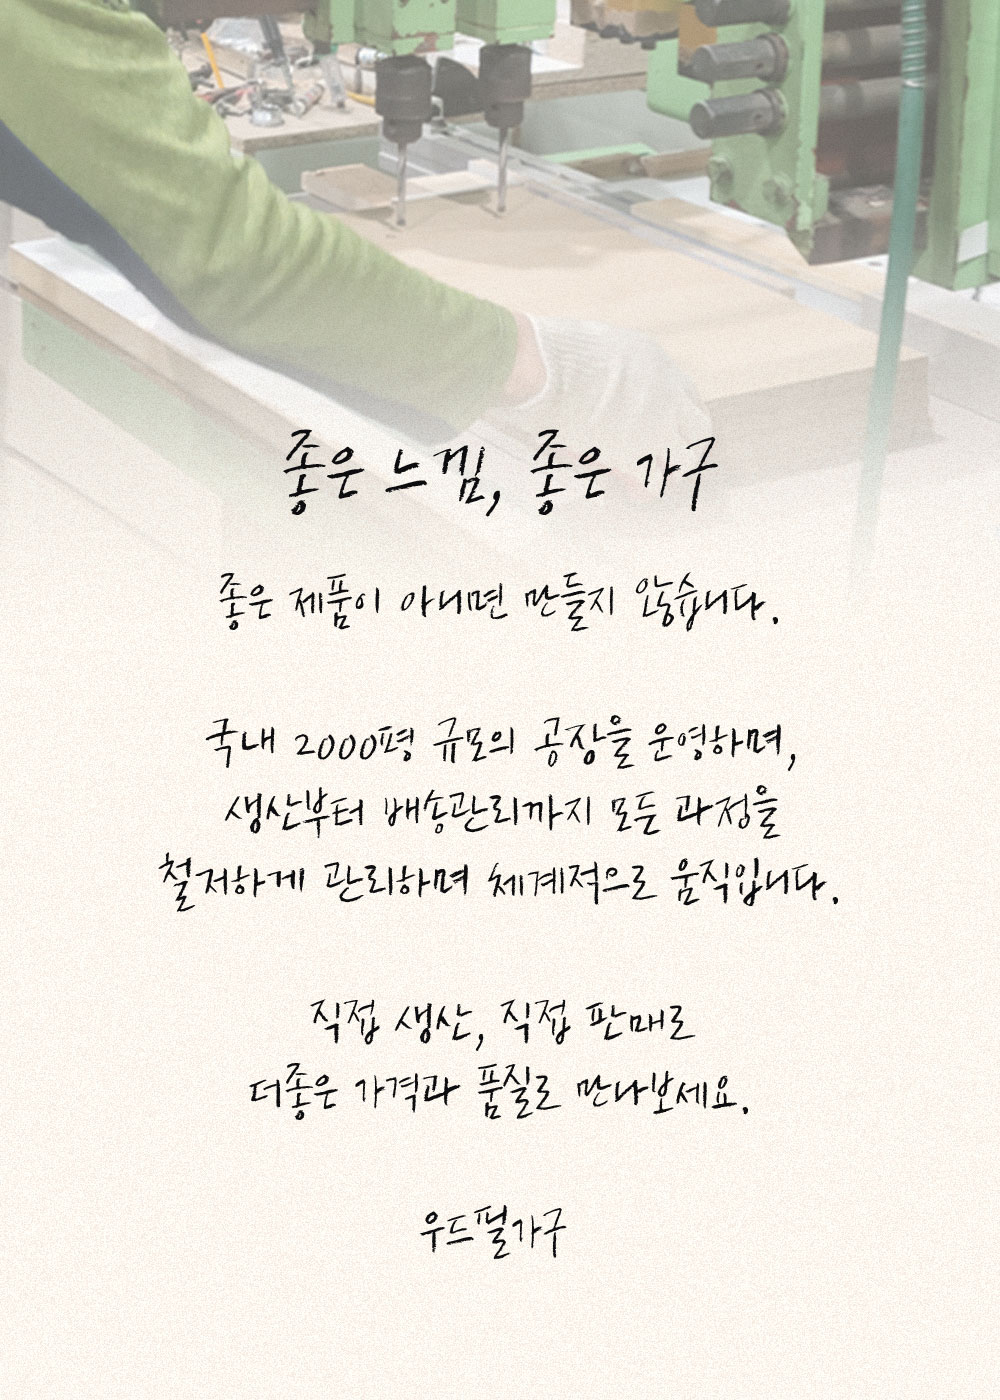 좋은 느낌, 좋은 가구
좋은 제품이 아니면 만들지 않습니다.
국내 2000평 규모의 공장을 운영하며,
생산부터 배송관리까지 모든 과정을
철저하게 관리하며 체계적으로 움직입니다.
직접 생산, 직접 판매로
더좋은 가격과 품질로 만나보세요.
우드필가구